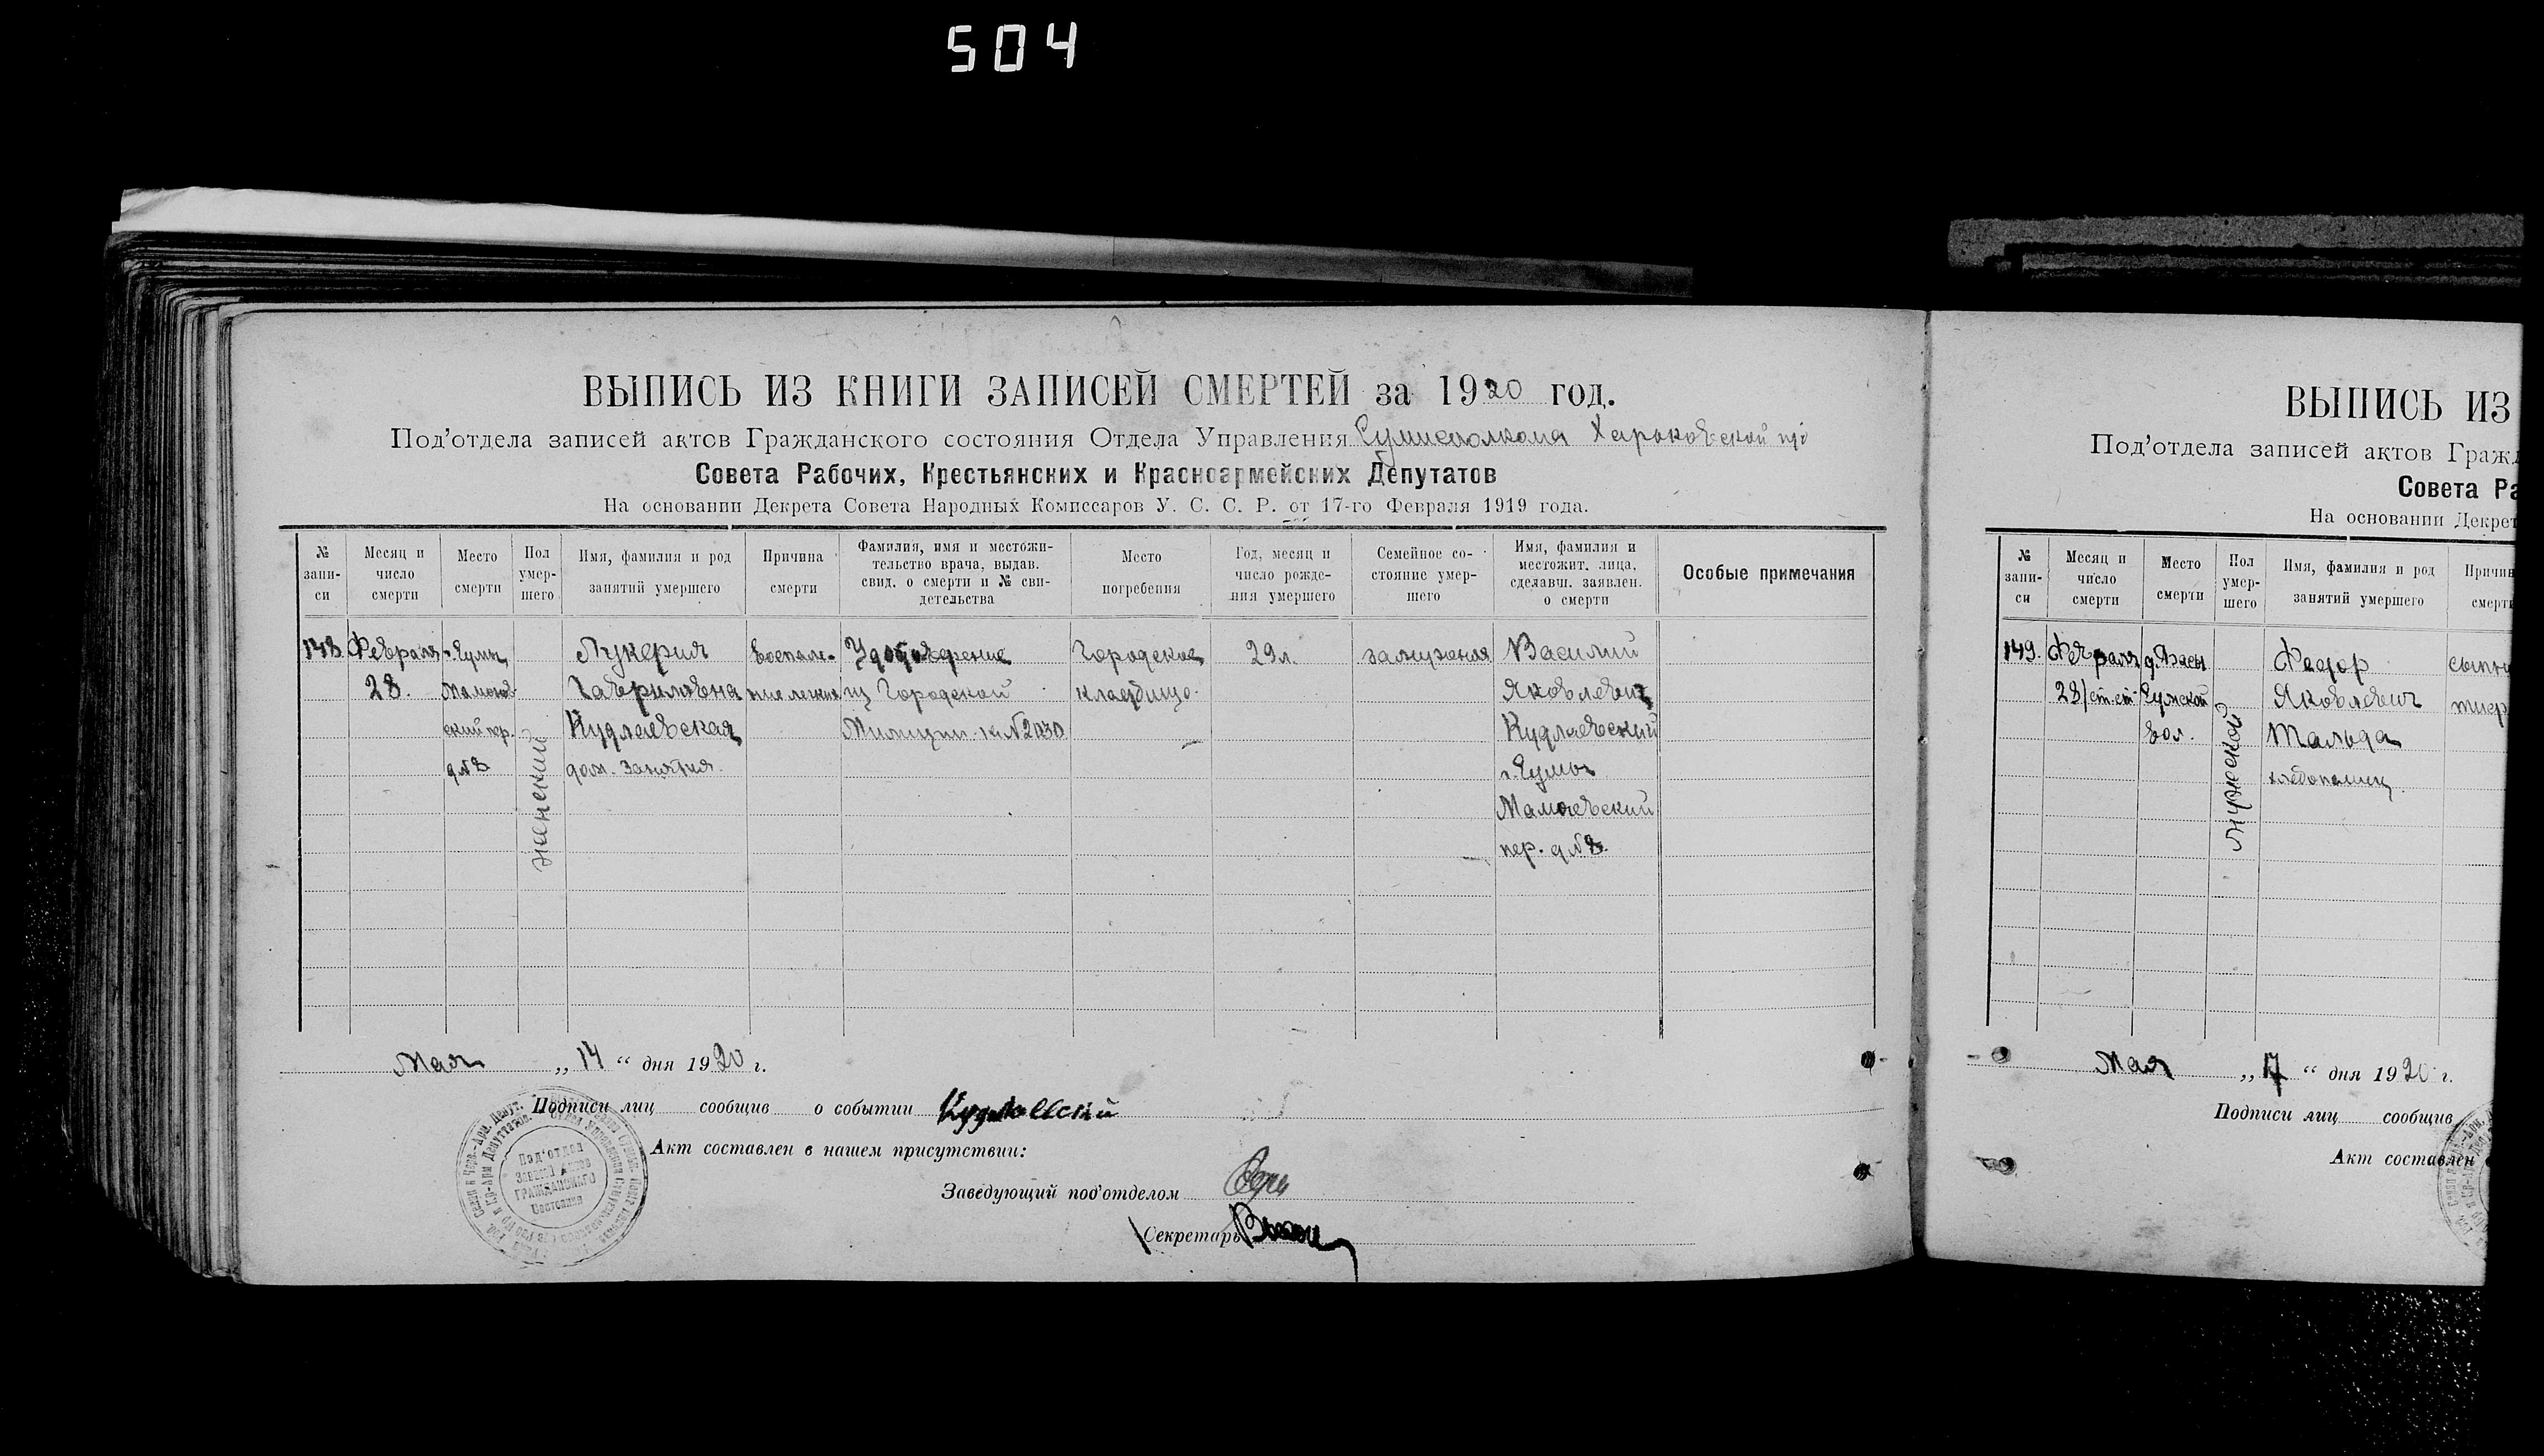 504
ВЫПИСЬ ИЗ КНИГИ ЗАПИСЕЙ СМЕРТЕЙ за 1920 год.
Под'отдела записей актов Гражданского состояния Отдела Управления Сумисполкома Харьковской
Совета Рабочих, Крестьянских и Красноармейских Депутатов
На основании Декрета Совета Народных Комиссаров У. С. С. Р. от 17-го Февраля 1919 года.
№ запи-си
Месяц и число смерти
Место смерти
Пол умер-шего
Имя, фамилия и род занятий умершего
Причина смерти
Фамилия, имя и местожи-тельство врача, выдав. свид. о смерти и № сви-детельства
Место погребения
Год, месяц и число рожде-ния умершего
Семейное со-стояние умер-шего
Имя, фамилия и местожит. лица, сделавш. заявлен. о смерти
Особые примечания
148. Февраля г. Сумы Лукерия воспале- Удостоверение Городское 29 л. замужняя Василий
28. Гаврииловна ние легких Городской кладбище Яковлевич
ский пер. Кудлаевская Милиции Кудлаевский
д №8 женский дом. занятия. г. Сумы
Мамаевский
пер. д №8.
Мая „ 14 “ дня 1920 г.
Подписи лиц сообщив о событии Кудлаевский
Акт составлен в нашем присутствии:
Заведующий под'отделом
Секретарь
Под'отдел
Записей Актов
ГРАЖДАНСКОГО
Состояния
ВЫПИСЬ ИЗ
Под'отдела записей актов Гражд
Совета Ра
На основании Декрет
№ запи-си
Месяц и число смерти
Место смерти
Пол умер-шего
Имя, фамилия и род занятий умершего
Причин
смерти
149. Февраля Федор сыпн
28/ст.ст. Сумской Яковлевич тиф
вол. мужской
хлебопашец
Мая „ 17 “ дня 1920 г.
Подписи лиц сообщив
Акт составлен